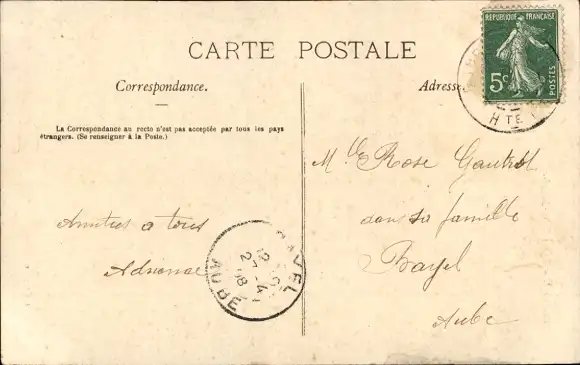 CARTE POSTALE
Correspondance.
La Correspondance au recto n'est pas acceptée par tous les pays
étrangers. (Se renseigner à la Poste.)
Amitiés a tous
Adrienne
BAYEL
12
27 4
08
AUBE
Adresse.
REPUBLIQUE FRANÇAISE
5c
POSTES
HTE
Mlle Rose Gautrot
dans sa famille
Bayel
Aube